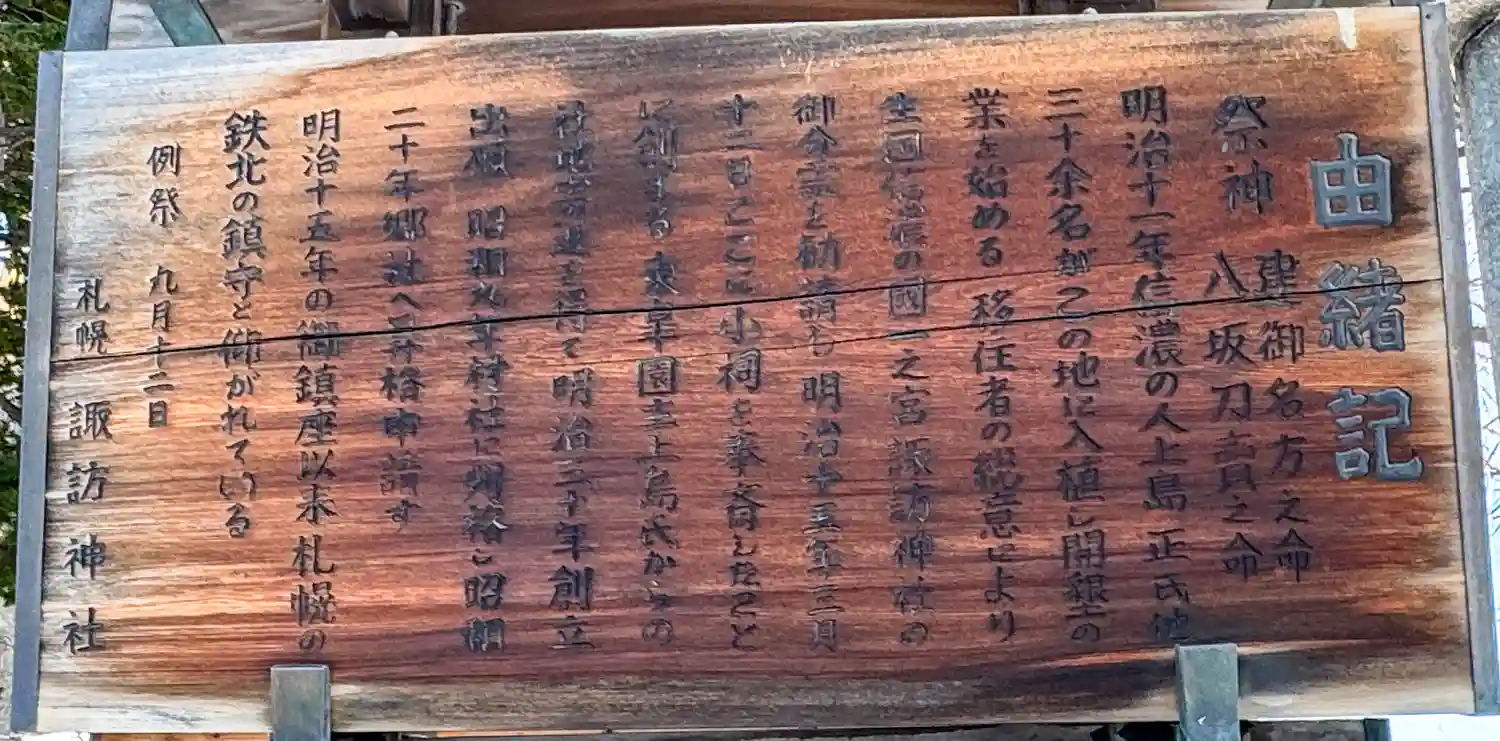 由緒記
祭神 建御名方之命
八坂刀売之命
明治十一年信濃の人上島正氏他
三十余名がこの地に入植し開墾の
業を始める 移住者の総意により
生国信濃の國一之宮諏訪神社の
御分霊を勧請し明治十五年三月
十二日ここに小祠を奉斎したこと
に創まる 東皐園主上島氏からの
社地寄進を得て明治三十年創立
出願 昭和九年村社に列格し昭和
二十年郷社へ昇格申請す
明治十五年の御鎮座以来札幌の
鉄北の鎮守と仰がれている
例祭 九月十二日
札幌 諏訪神社